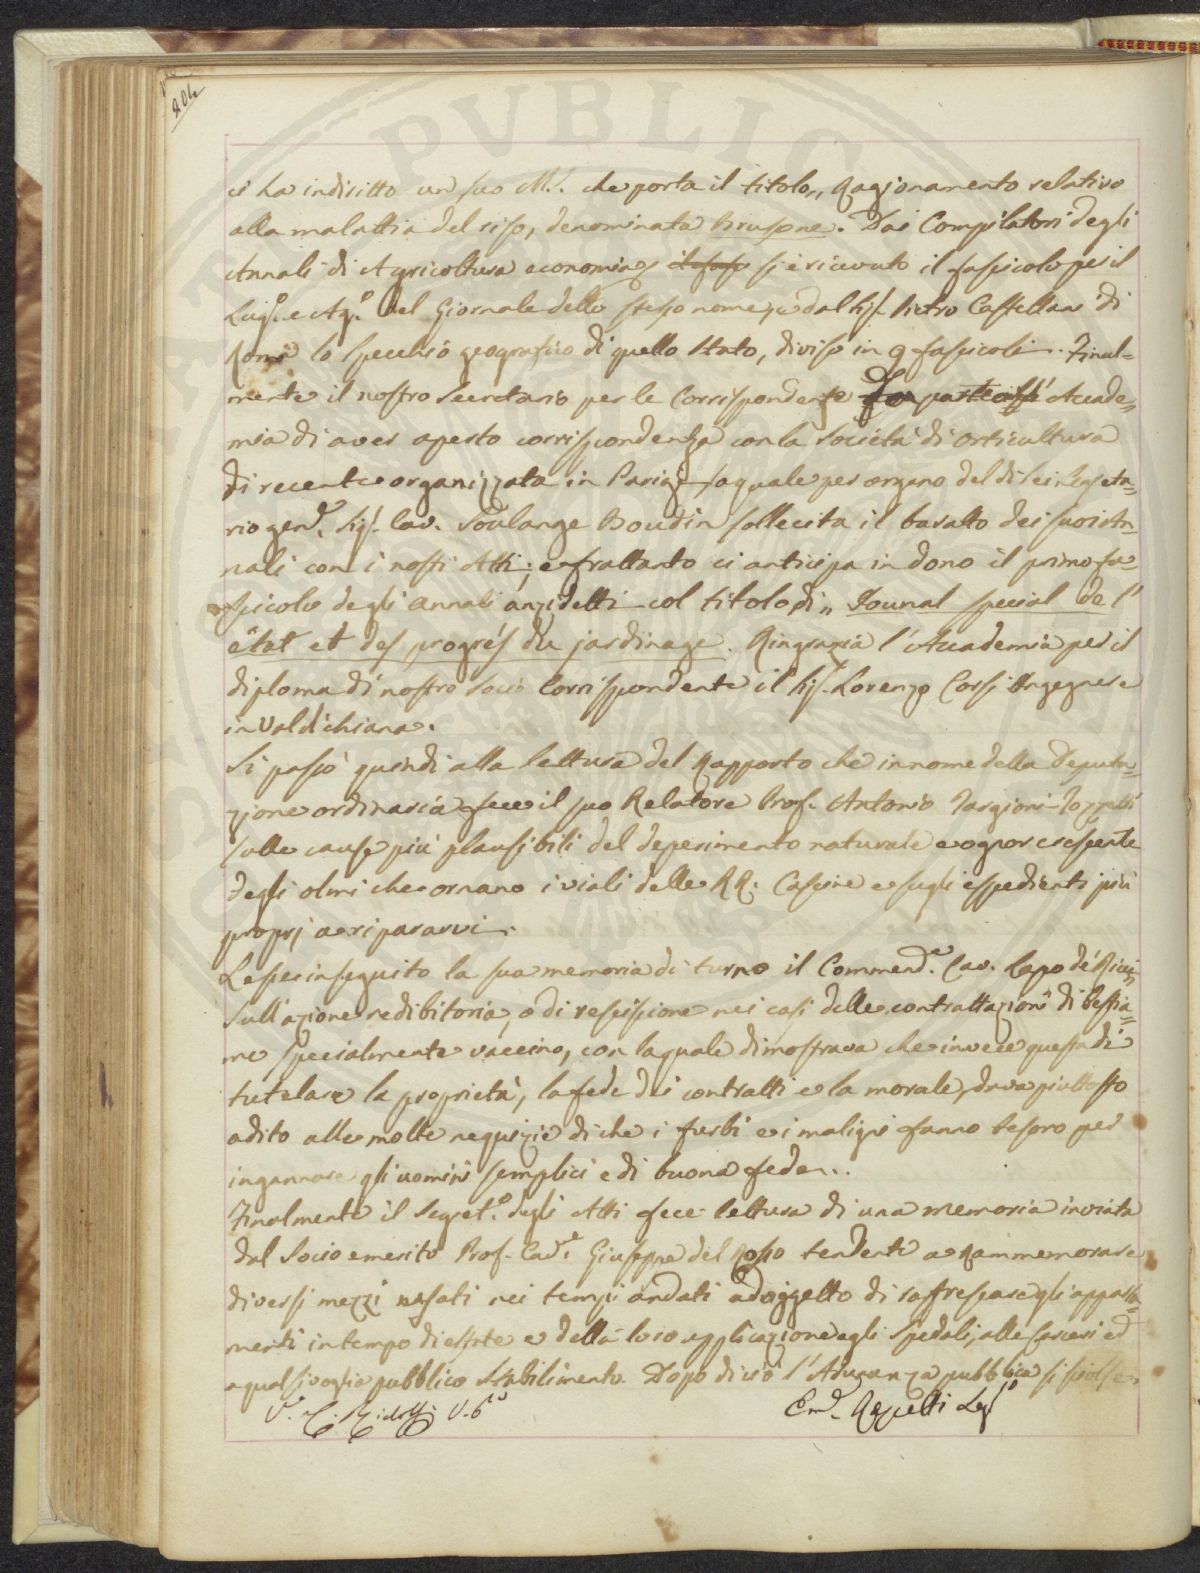 204
ci ha indiritto un suo MS. che porta il titolo „ Ragionamento relativo
alla malattia del riso, denominata brusone. Dai Compilatori degli
Annali di Agricoltura economia si è ricevuto il fascicolo per il
Lug.º e Ag.º del Giornale dello stesso nome, e dal Sig. Pietro Castellani di
Roma lo specchio geografico di quello Stato, diviso in 9 fascicoli. Final=
mente il nostro Secretario per le Corrispondenze partecipò Accade=
mia di aver aperto corrispondenza con la Società di orticultura
di recente organizzata in Parigi la quale per organo del di Lei Segreta=
rio gen.e Sig. Cav. Soulange Boudin sollecita il baratto dei suoi An=
nali con i nostri Atti; e frattanto ci anticipa in dono il primo fa=
scicolo degli annali anzidetti col titolo di „ Jounal special de l'
état et des progrés du jardinage. Ringrazia l'Accademia per il
diploma di nostro socio Corrispondente il Sig. Lorenzo Corsi Ingegnere
in Valdichiana.
Si passò quindi alla lettura del Rapporto che in nome della Deputa=
zione ordinaria fece il suo Relatore Prof. Antonio Targioni-Tozzetti
sulle cause più plausibili del deperimento naturale e ognor crescente
degli olmi che ornano i viali delle RR. Cascine e sugli espedienti più
proprj a ripararvi.
Lesse in seguito la sua memoria di turno il Commend.e Cav. Lapo de' Ricci
sull'azione redibitoria, o di rescissione nei casi delle contrattazioni di bestia=
me specialmente vaccino, con la quale dimostrava che invece questa di
tutelare la proprietà, la fede dei contratti e la morale, dava piuttosto
adito alle molte nequizie di che i furbi e i maligni fanno tesoro per
ingannare gli uomini semplici e di buona fede..
Finalmente il Segret.º degli Atti fece lettura di una memoria inviata
dal Socio emerito Prof. Cav.e Giuseppe del Rosso tendente a rammemorare
diversi mezzi usati nei tempi andati ad oggetto di rafrescare gli apparta=
menti in tempo di estate e della loro applicazione agli Spedali, alle Carceri ed
a qualsivoglia pubblico Stabilimento. Dopo di ciò l'Adunanza pubblica si sciolse.
V.º C. Ridolfi V. P.te
Em.e Repetti Seg.º